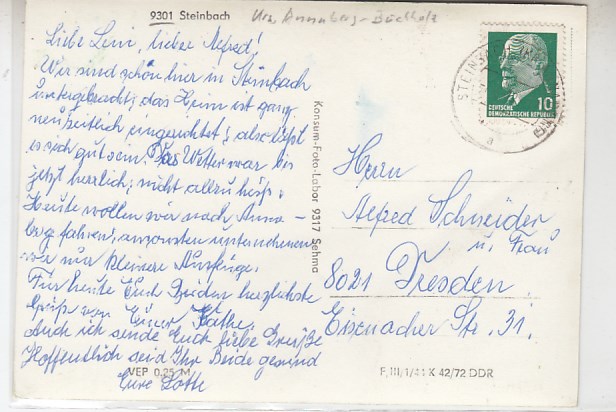 9301 Steinbach
Krs. Annaberg-Buchholz
Liebe Leni, lieber Alfred!
Wir sind schön hier in Steinbach
untergebracht, das Heim ist ganz
neuzeitlich eingerichtet, also läßt
es sich gut sein. Das Wetter war bis
jetzt herrlich, nicht allzu heiß.
Heute wollen wir nach Anna-
berg fahren, ansonsten unternehmen
wir nur kleinere Ausflüge.
Für heute Euch Beiden herzlichste
Grüße von Eurer Käthe.
Auch ich sende Euch liebe Grüße
Hoffentlich seid Ihr Beide gesund
Eure Lotte
VEP 0,25 M
Konsum-Foto-Labor 9317 Sehma
STEINBACH
10
DEUTSCHE
DEMOKRATISCHE REPUBLIK
a
Herrn
Alfred Schneider
u. Frau
8021 Dresden
Eisenacher Str. 31.
F III/1/44 K 42/72 DDR